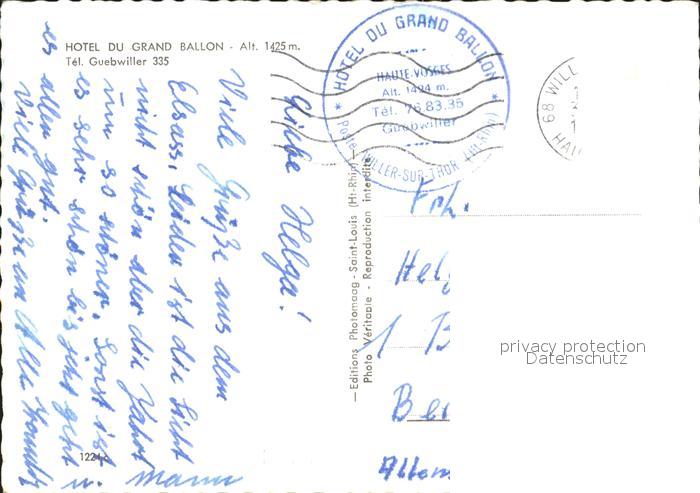 HOTEL DU GRAND BALLON - Alt. 1425 m.
Tél. Guebwiller 335
HOTEL DU GRAND BALLON
HAUTE-VOSGES
Alt. 1424 m.
Tél. 76.83.35
Guebwiller
Poste WILLER-SUR-THUR (Ht-Rhin)
68 WILL
HAU
Liebe Helga!
Viele Grüße aus dem
Elsass. Leider ist die Sicht
nicht schön aber die Fahrt
um so schöner. Sonst ist
es sehr schön bis jetzt geht
es allen gut.
Viele Grüße an Alle
u. Mann
— Editions Photomaag - Saint-Louis (Ht-Rhin) —
Photo Véritable - Reproduction interdite
Frl.
Helg
1 B
Ber
Allem
1224
privacy protection
Datenschutz